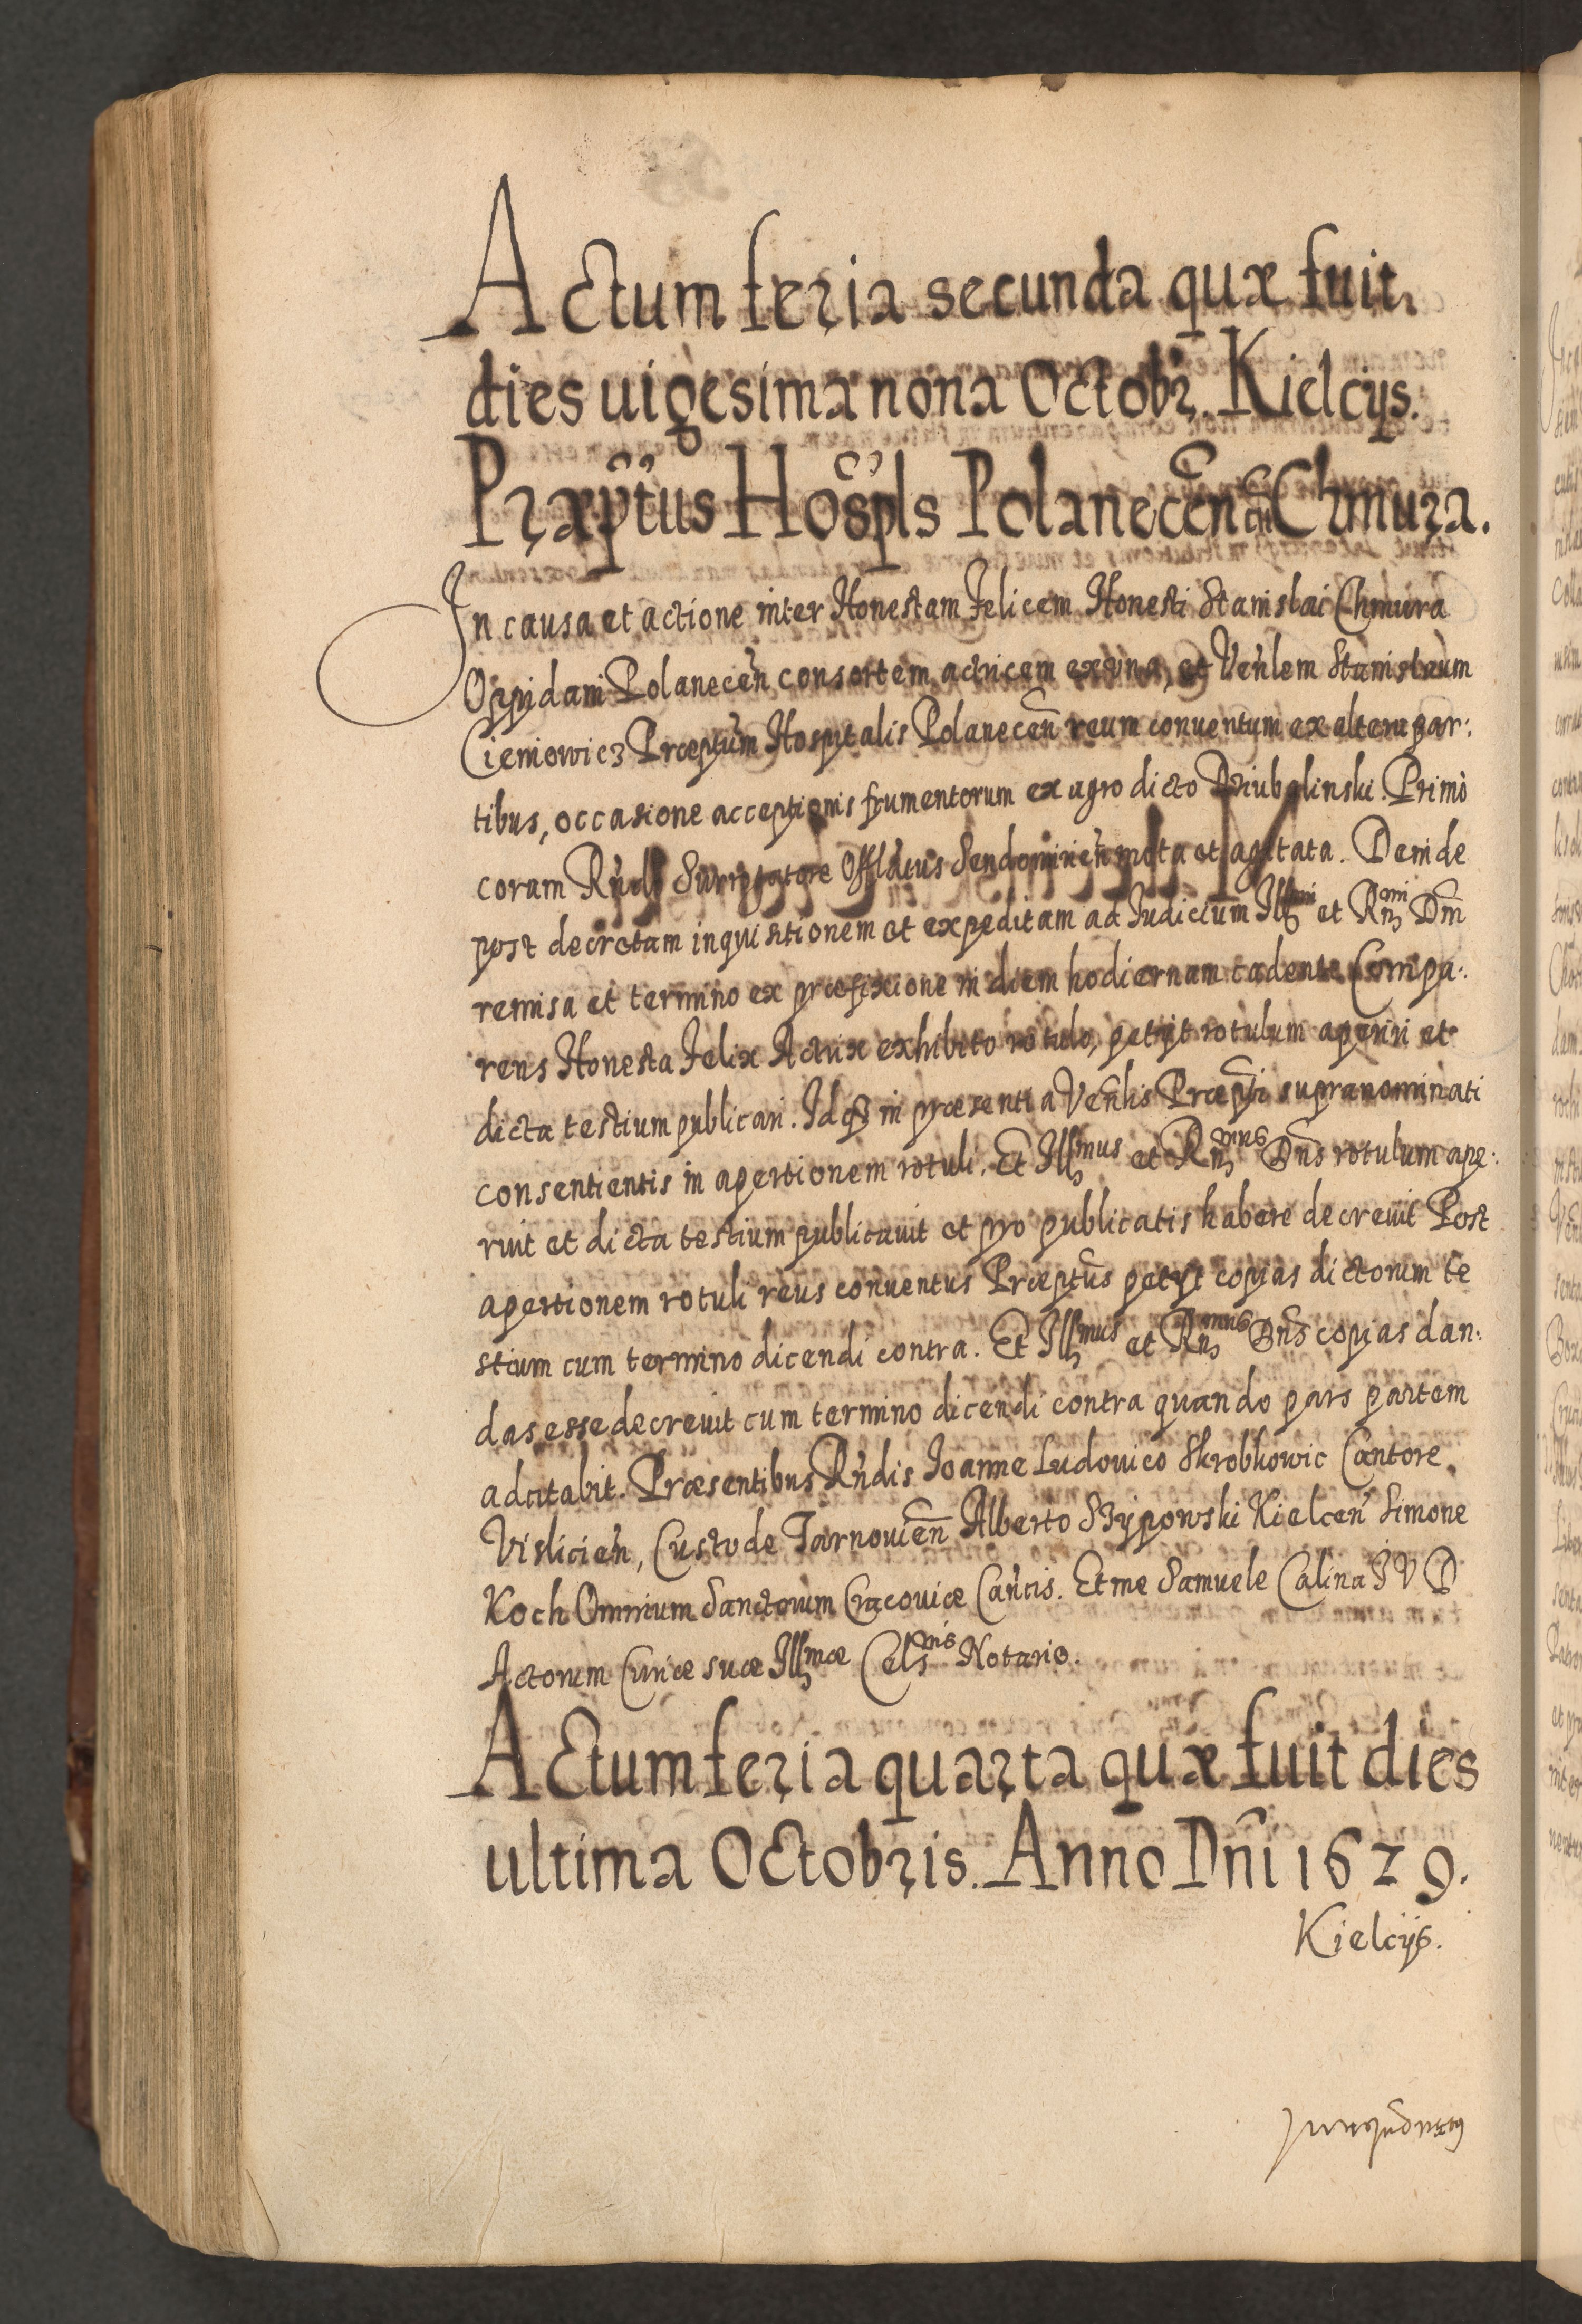 Actum feria secunda quæ fuit
dies uigesima nona Octobr. Kielcijs.
Præptus Hospls Polanecen cū Chmura.
In causa et actione inter Honestam Felicem Honesti Stanislai Chmura
Oppidani Polanecen consortem actricem ex una, et Venlem Stanisleum
Cieniowicz Præptum Hospitalis Polanecen reum conuentum ex altera par:
tibus, occasione acceptionis frumentorum ex agro dicto Dziubalinski. Primò
coram Rndo Surrogatore Offlatus Sendomirien mota et agitata. Deinde
post decretam inquisitionem et expeditam ad Iudicium Illmi et Rmi Dni
remisa et termino ex præfixione in diem hodiernam cadente Compa:
rens Honesta Felix Actrix exhibito rotulo, petijt rotulum aperiri et
dicta testium publicari. Idq3 in præsentia Venlis Præpti supranominati
consentientis in apertionem rotuli. Et Illmus et Rmus Dns rotulum ape:
ruit et dicta testium publicauit et pro publicatis habere decreuit Post
apertionem rotuli reus conuentus Præptus petijt copias dictorum te
stium cum termino dicendi contra. Et Illmus et Rmus Dns copias dan:
das esse decreuit cum termino dicendi contra quando pars partem
adcitabit. Præsentibus Rndis Ioanne Ludouico Skrobkowic Cantore
Vislicien, Custode Tarnouien Alberto Szypowski Kielcen Simone
Koch Omnium Sanctorum Cracouiæ Cantis. Et me Samuele Calina I V D
Actorum Curiæ suæ Illmæ Celsnis Notario.
Actum feria quarta quæ fuit dies
ultima Octobris. Anno Dni 1629.
Kielcijs.